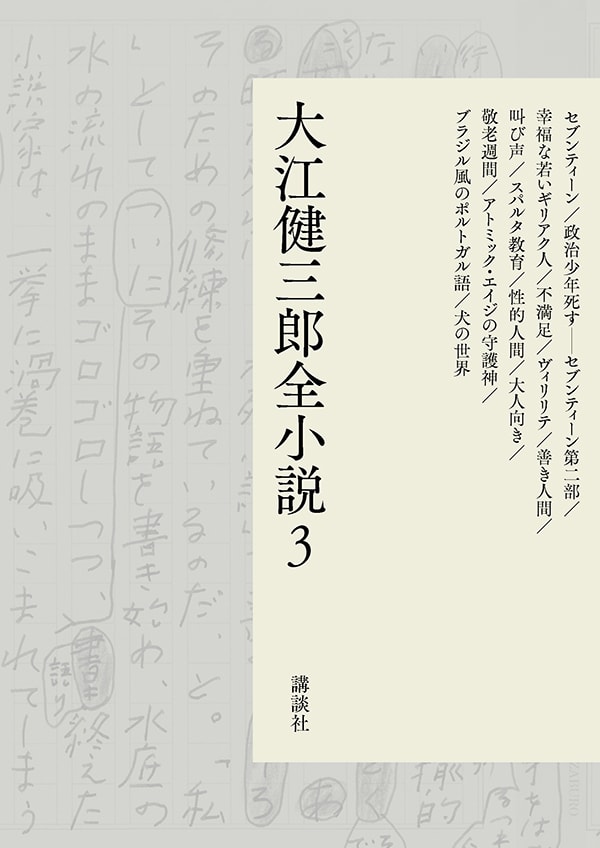 セブンティーン／政治少年死す――セブンティーン第二部／
幸福な若いギリアク人／不満足／ヴィリリテ／善き人間／
叫び声／スパルタ教育／性的人間／大人向き／
敬老週間／アトミック・エイジの守護神／
ブラジル風のポルトガル語／犬の世界
大江健三郎全小説3
講談社
そのための修練を重ねているのだ、と。「私
」としてついにその物語を書き始め、水底の
水の流れのままゴロゴロしつつ、書き終えた
語り
小説家は、一挙に渦巻に吸いこまれてしまう